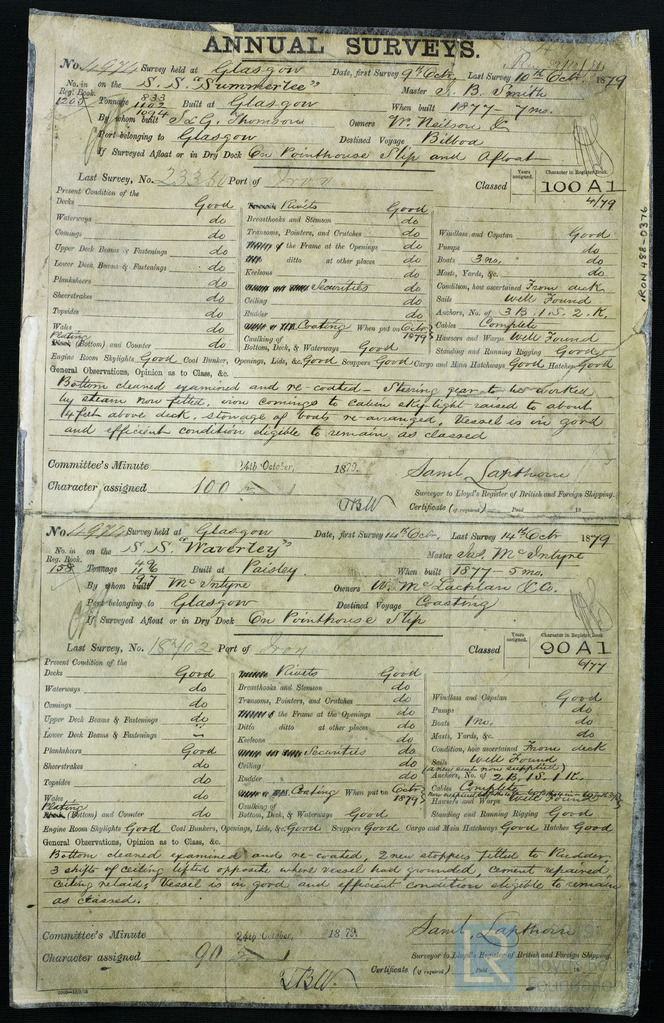 ANNUAL SURVEYS.
No. 4974 Survey held at Glasgow Date, first Survey 9th Octr Last Survey 10th Octr 1879
No. in Reg. Book. 1205 on the S.S. "Summerlee" Master J. B. Smith
Tonnage 833 1102 1024 Built at Glasgow When built 1877 - 7mo.
By whom built J & G. Thomson Owners W. Neilson &
Port belonging to Glasgow Destined Voyage Bilboa
If Surveyed Afloat or in Dry Dock On Pointhouse Slip and Afloat
Last Survey, No. 23350 Port of Iron Classed Years assigned. Character in Register Book. 100 A1 4/79
Present Condition of the
Decks Good
Waterways do
Comings do
Upper Deck Beams & Fastenings do
Lower Deck Beams & Fastenings do
Planksheers do
Sheerstrakes do
Topsides do
Wales do
Plating (Bottom) and Counter do
Rivets Good
Breasthooks and Stemson do
Transoms, Pointers, and Crutches do
of the Frame at the Openings do
ditto at other places do
Keelsons do
Securities do
Ceiling do
Rudder do
Coating When put on Octbr 1879
Caulking of Bottom, Deck, & Waterways Good
Windlass and Capstan Good
Pumps do
Boats 3 no. do
Masts, Yards, &c. do
Condition, how ascertained From deck
Sails Well Found
Anchors, No. of 3 B. 1 S. 2 K.
Cables Complete
Hawsers and Warps Well Found
Standing and Running Rigging Good
Engine Room Skylights Good Coal Bunker, Openings, Lids, &c. Good Scuppers Good Cargo and Main Hatchways Good Hatches Good
General Observations, Opinion as to Class, &c.
Bottom cleaned examined and re-coated - Steering gear to be worked
by steam now fitted, iron comings to cabin skylight raised to about
4 feet above deck, stowage of boats re-arranged, Vessel is in good
and efficient condition eligible to remain as classed
Committee's Minute 14th October, 1879.
Character assigned 100 1
Saml Lapthorn
Surveyor to Lloyd's Register of British and Foreign Shipping.
Certificate (if required) Paid 18
IRON 488-0376
No. 4974 Survey held at Glasgow Date, first Survey 14th Octr Last Survey 14th Octr 1879
No. in Reg. Book. 158 on the S.S. "Waverley" Master Jas. McIntyre
Tonnage 49 116 97 Built at Paisley When built 1877 - 5 mo.
By whom built McIntyre Owners W. McLachlan & Co.
Port belonging to Glasgow Destined Voyage Coasting
If Surveyed Afloat or in Dry Dock On Pointhouse Slip
Last Survey, No. 18702 Port of Iron Classed Years assigned. Character in Register Book. 90 A1 6/77
Present Condition of the
Decks Good
Waterways do
Comings do
Upper Deck Beams & Fastenings do
Lower Deck Beams & Fastenings
Planksheers Good
Sheerstrakes do
Topsides do
Wales do
Plating (Bottom) and Counter do
Rivets Good
Breasthooks and Stemson do
Transoms, Pointers, and Crutches do
of the Frame at the Openings do
Ditto ditto at other places do
Keelsons do
Securities do
Ceiling do
Rudder do
Coating When put on Octbr 1879
Caulking of Bottom, Deck, & Waterways Good
Windlass and Capstan Good
Pumps do
Boats 1 no. do
Masts, Yards, &c. do
Condition, how ascertained From deck
Sails Well Found
Anchors, No. of 2 B. 1 S. 1 K.
Cables Complete
Hawsers and Warps Well Found
Standing and Running Rigging Good
Engine Room Skylights Good Coal Bunkers, Openings, Lids, &c. Good Scuppers Good Cargo and Main Hatchways Good Hatches Good
General Observations, Opinion as to Class, &c.
Bottom cleaned examined and re-coated, 2 new stoppers fitted to Rudder,
3 shifts of ceiling lifted opposite where vessel had grounded, cement repaired,
Ceiling relaid; Vessel is in good and efficient condition eligible to remain
as classed.
Committee's Minute 24th October, 1879.
Character assigned 90 1
Saml Lapthorn
Surveyor to Lloyd's Register of British and Foreign Shipping.
Certificate (if required) Paid 18